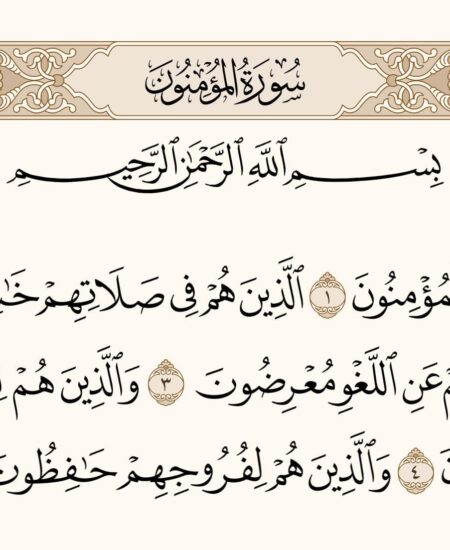 سُورَةُ المُؤْمِنُونَ
بِسْمِ ٱللَّهِ ٱلرَّحْمَٰنِ ٱلرَّحِيمِ
مُؤْمِنُونَ ١ الَّذِينَ هُمْ فِى صَلَاتِهِمْ خَٰ
عَنِ اللَّغْوِ مُعْرِضُونَ ٣ وَٱلَّذِينَ هُمْ لِ
نَ ٤ وَٱلَّذِينَ هُمْ لِفُرُوجِهِمْ حَٰفِظُونَ